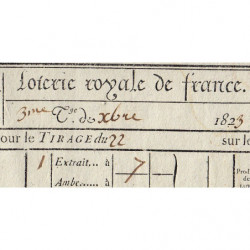 Loterie royale de france.
3me Tge. de Xbre 1823
our le TIRAGE du 22 sur le
1 Extrait... à 7
Ambe..... à